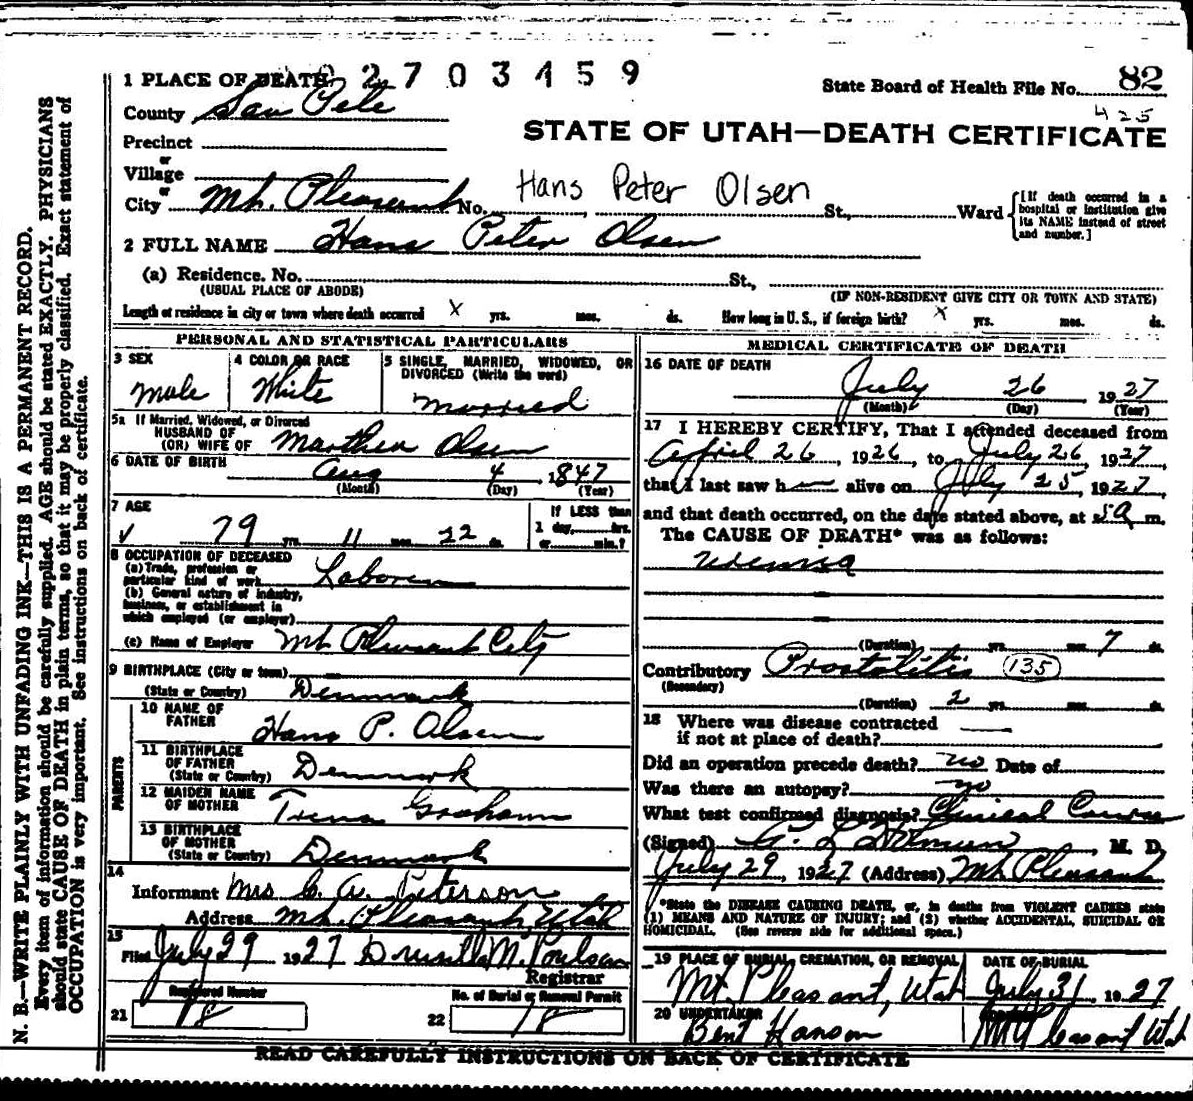 2703459
1 PLACE OF DEATH
State Board of Health File No. 82
County San Pete
425
STATE OF UTAH—DEATH CERTIFICATE
Precinct
or
Village
or
Hans Peter Olsen
City Mt. Pleasant No. St., Ward
[If death occurred in a hospital or institution give its NAME instead of street and number.]
2 FULL NAME Hans Peter Olsen
(a) Residence. No. St.,
(USUAL PLACE OF ABODE) (IF NON-RESIDENT GIVE CITY OR TOWN AND STATE)
Length of residence in city or town where death occurred X yrs. mos. ds. How long in U. S., if foreign birth? X yrs. mos. ds.
PERSONAL AND STATISTICAL PARTICULARS
3 SEX
Male
4 COLOR OR RACE
White
5 SINGLE, MARRIED, WIDOWED, OR
DIVORCED (Write the word)
Married
5a If Married, Widowed, or Divorced
HUSBAND OF
(OR) WIFE OF Marthea Olsen
6 DATE OF BIRTH Aug 4, 1847
(Month) (Day) (Year)
7 AGE
79 yrs. 11 mos. 22 ds.
If LESS than
1 day, hrs.
or min.?
8 OCCUPATION OF DECEASED
(a) Trade, profession or
particular kind of work Laborer
(b) General nature of industry,
business, or establishment in
which employed (or employer)
(c) Name of Employer Mt Pleasant City
9 BIRTHPLACE (City or town)
(State or Country) Denmark
PARENTS
10 NAME OF
FATHER Hans P. Olsen
11 BIRTHPLACE
OF FATHER
(State or Country) Denmark
12 MAIDEN NAME
OF MOTHER Trena
13 BIRTHPLACE
OF MOTHER
(State or Country) Denmark
14
Informant Mrs C. A. Peterson
Address Mt. Pleasant, Utah
15
Filed July 29 1927 Druscilla M. Poulson
Registrar
Registered Number
21 18
No. of Burial or Removal Permit
22 18
MEDICAL CERTIFICATE OF DEATH
16 DATE OF DEATH
July 26 1927
(Month) (Day) (Year)
17 I HEREBY CERTIFY, That I attended deceased from
April 26, 1926, to July 26 1927,
that I last saw h alive on July 25, 1927,
and that death occurred, on the date stated above, at 5 a m.
The CAUSE OF DEATH* was as follows:
Uremia
(Duration) yrs. mos. 7 ds.
Contributory Prostatitis 135
(Secondary)
(Duration) 2 yrs. mos. ds.
18 Where was disease contracted
if not at place of death?
Did an operation precede death? no Date of
Was there an autopsy? no
What test confirmed diagnosis? Clinical Course
(Signed) M. D.
July 29, 1927 (Address) Mt Pleasant
*State the DISEASE CAUSING DEATH, or, in deaths from VIOLENT CAUSES state
(1) MEANS AND NATURE OF INJURY; and (2) whether ACCIDENTAL, SUICIDAL OR
HOMICIDAL. (See reverse side for additional space.)
19 PLACE OF BURIAL, CREMATION, OR REMOVAL
Mt. Pleasant, Utah
DATE OF BURIAL
July 31, 1927
20 UNDERTAKER
Bent Hanson
Mt Pleasant Utah
READ CAREFULLY INSTRUCTIONS ON BACK OF CERTIFICATE
N. B.—WRITE PLAINLY WITH UNFADING INK—THIS IS A PERMANENT RECORD.
Every item of information should be carefully supplied. AGE should be stated EXACTLY. PHYSICIANS
should state CAUSE OF DEATH in plain terms, so that it may be properly classified. Exact statement of
OCCUPATION is very important. See instructions on back of certificate.